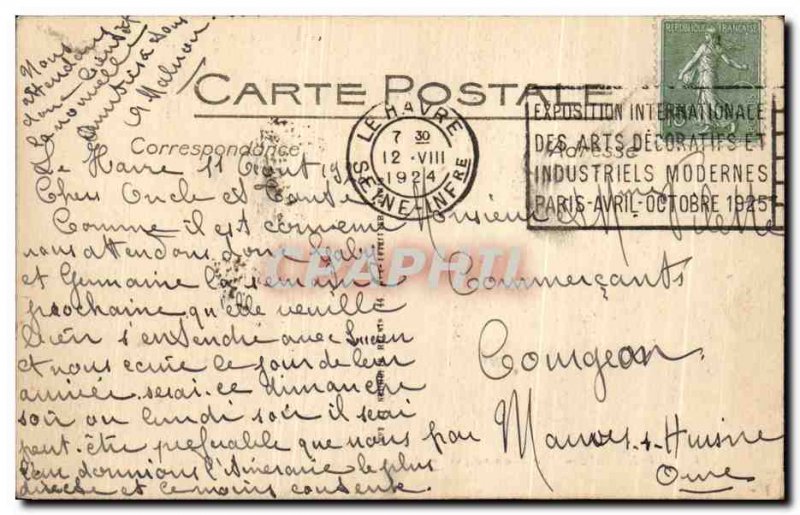 RÉPUBLIQUE FRANÇAISE
CARTE POSTALE
Correspondance
Adresse
LE HAVRE
7 30
12 - VIII
1924
SEINE-INFRE
EXPOSITION INTERNATIONALE
DES ARTS DÉCORATIFS ET
INDUSTRIELS MODERNES
PARIS-AVRIL-OCTOBRE 1925
CPAPHIL
Nous
attendons
donc bientôt
la nouvelle
à vous
Le Havre 11 Aout 19
Cher Oncle et Tante
Comme il est convenu
nous attendons donc Gaby
et Germaine la semaine
prochaine qu'elle veuille
bien s'entendre avec
et nous écrire le jour de leur
arrivée serai-ce dimanche
soir ou lundi soir il serai
peut-être préférable que nous
leur donnions l'itinéraire le plus
directe et ce moins
Monsieur et Mme
Commerçants
Courgeon
par Mauves-s-Huisne
Orne